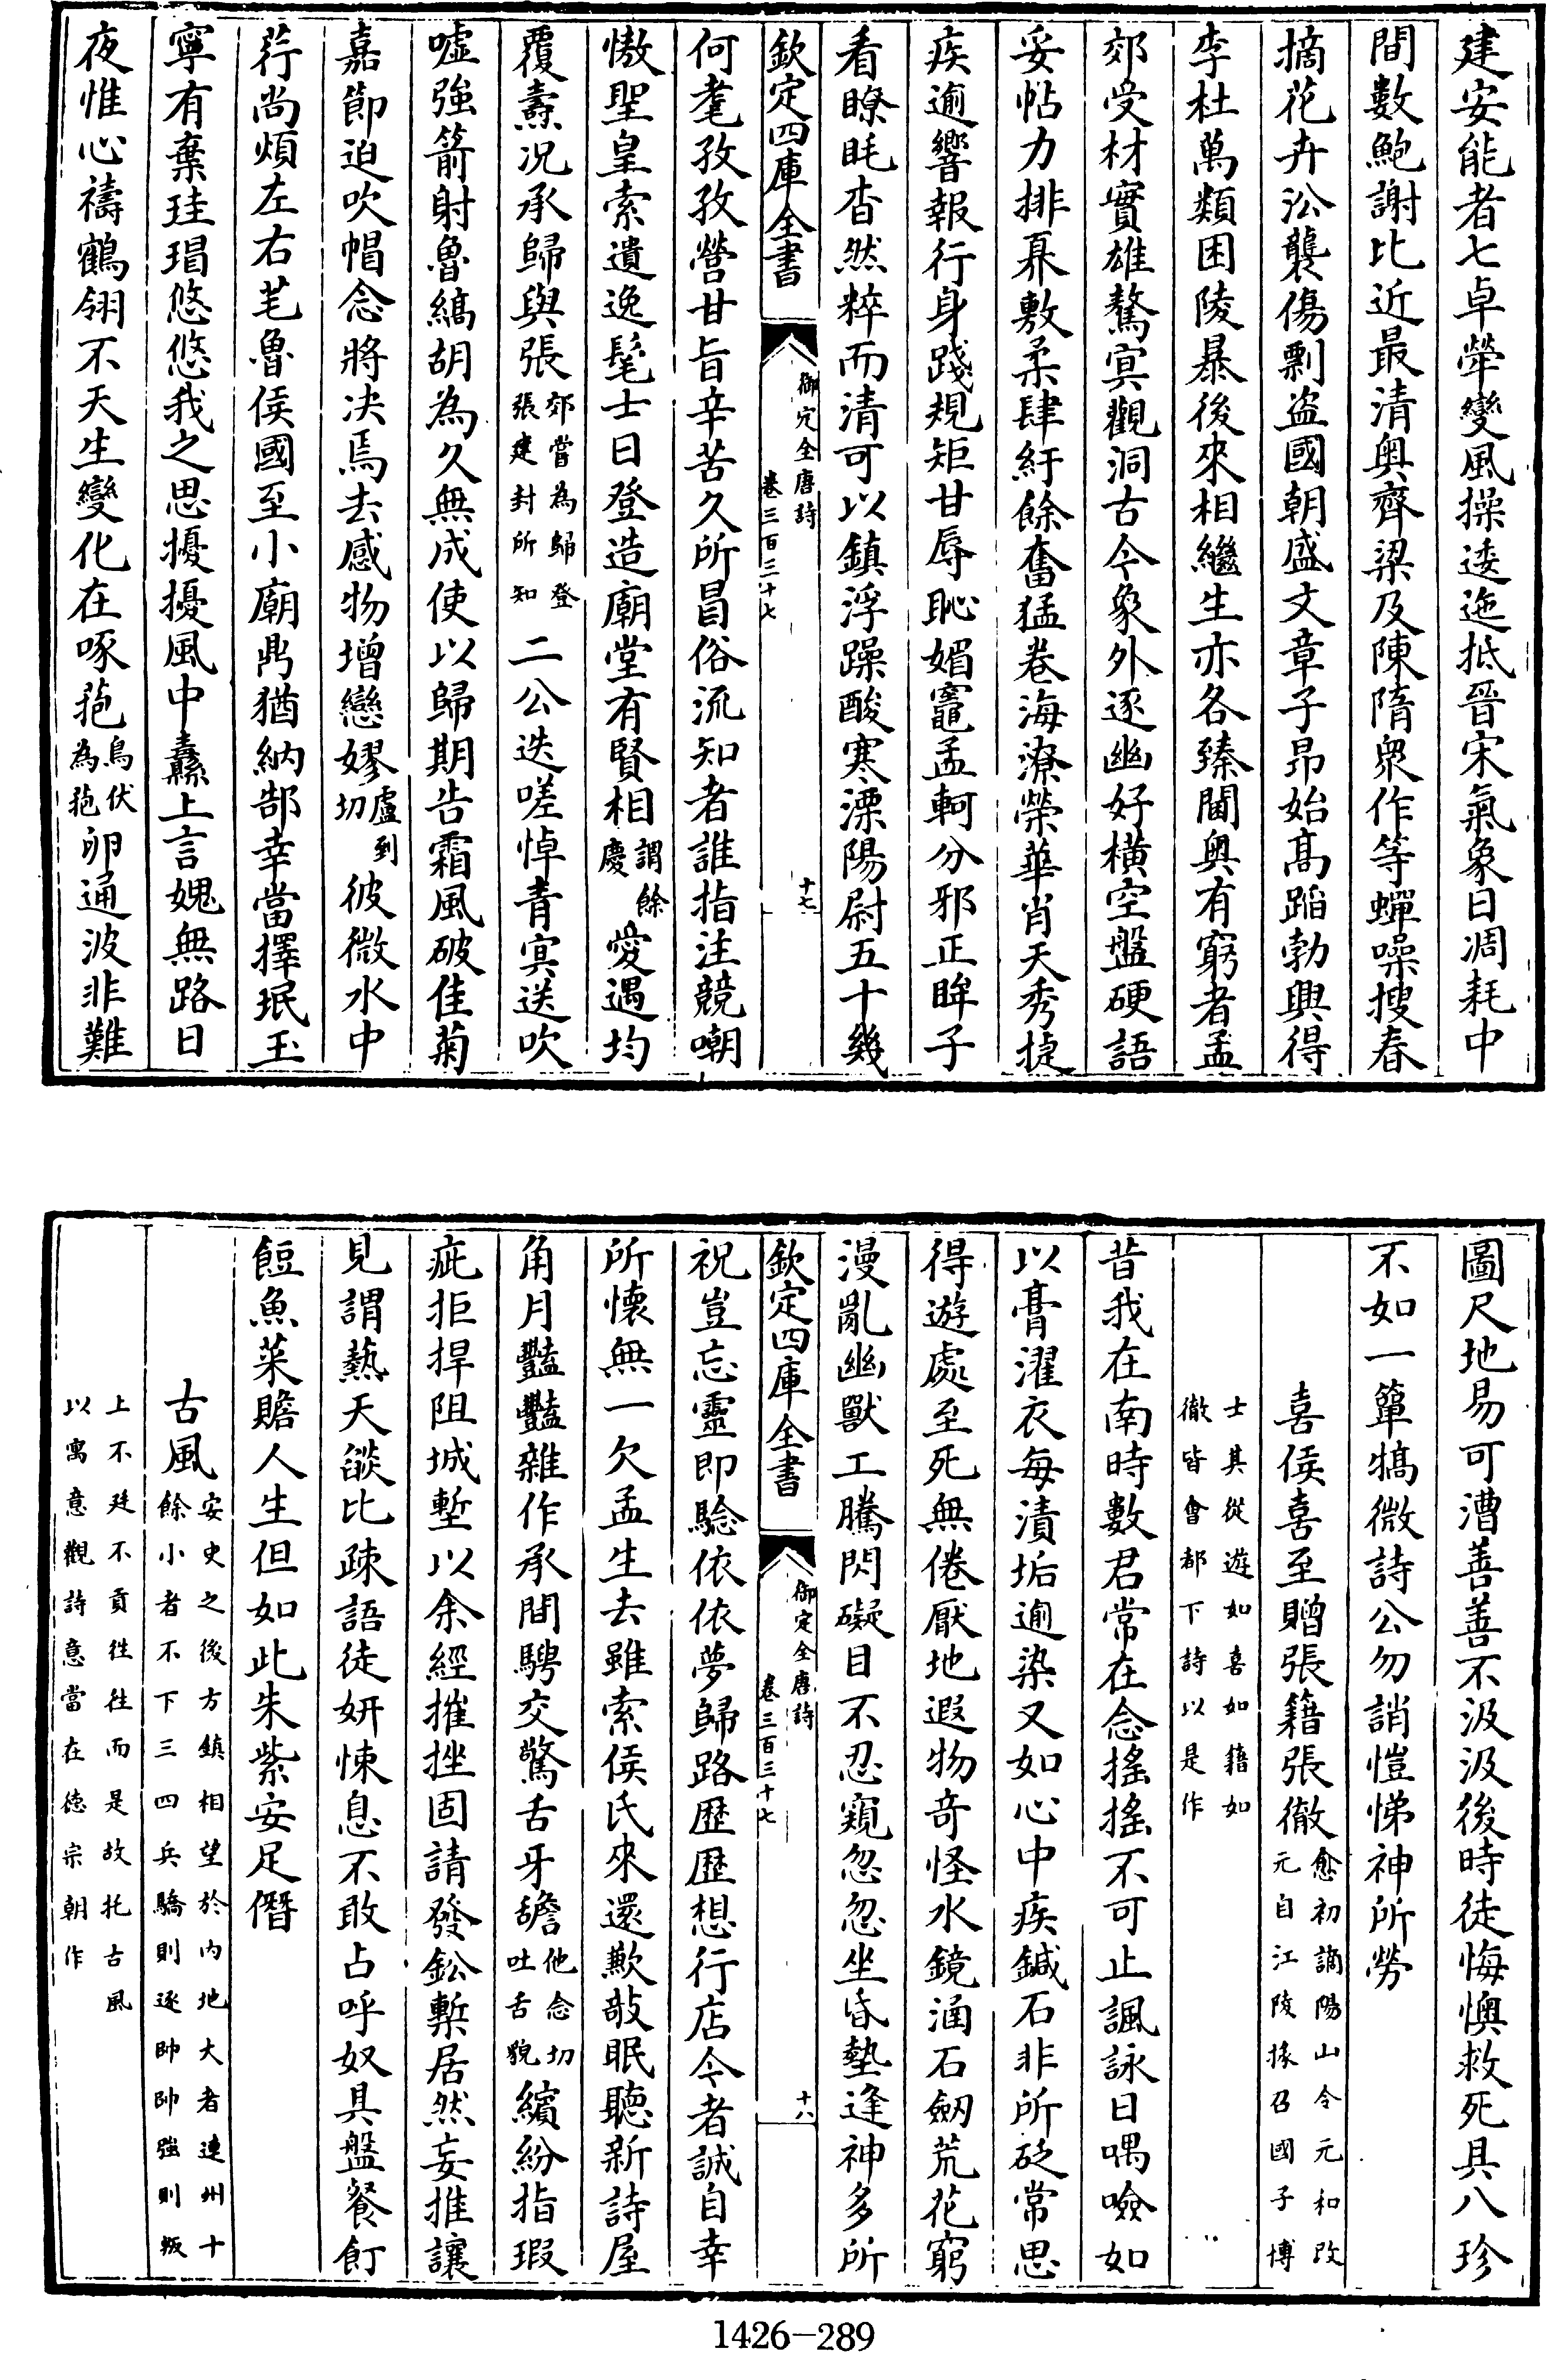 建安能者七卓犖變風操逶迤抵晉宋氣象日凋耗中
間數鮑謝比近最清奥齊梁及陳隋衆作等蟬噪搜春
摘花卉㳂襲傷剽盗國朝盛文章子昂始髙蹈勃興得
李杜萬類困陵暴後來相繼生亦各臻閫奥有窮者孟
郊受材實雄驁冥觀洞古今象外逐幽好橫空盤硬語
妥帖力排奡敷柔肆紆餘奮猛卷海潦榮華肖天秀捷
疾逾響報行身踐規矩甘辱恥媚竈孟軻分邪正眸子
看瞭眊杳然粹而清可以鎮浮躁酸寒溧陽尉五十幾
欽定四庫全書
御定全唐詩
卷三百三十七
十七
何耄孜孜營甘旨辛苦久所冒俗流知者誰指注競嘲
慠聖皇索遺逸髦士日登造廟堂有賢相謂餘慶愛遇均
覆燾况承歸與張郊嘗為歸登張建封所知二公迭嗟悼青冥送吹
噓強箭射魯縞胡為久無成使以歸期告霜風破佳菊
嘉節迫吹帽念將决焉去感物增戀嫪盧到切彼微水中
荇尚煩左右芼魯侯國至小廟鼎猶納郜幸當擇珉玉
寧有棄珪瑁悠悠我之思擾擾風中纛上言媿無路日
夜惟心禱鶴翎不天生變化在啄菢鳥伏為菢卵通波非難
圖尺地易可漕善善不汲汲後時徒悔懊救死具八珍
不如一簞犒微詩公勿誚愷悌神所勞
喜侯喜至贈張籍張徹愈初謫陽山令元和改
元自江陵掾召國子博
士其從遊如喜如籍如
徹皆會都下詩以是作
昔我在南時數君常在念搖搖不可止諷詠日喁噞如
以膏濯衣每漬垢逾染又如心中疾鍼石非所砭常思
得遊處至死無倦厭地遐物奇怪水鏡涵石劒荒花窮
漫亂幽獸工騰閃礙目不忍窺忽忽坐昏墊逢神多所
欽定四庫全書
御定全唐詩
卷三百三十七
十八
祝豈忘靈即驗依依夢歸路歷歷想行店今者誠自幸
所懷無一欠孟生去雖索侯氏來還歉敧眠聽新詩屋
角月豔豔雜作承間騁交驚舌牙䑙他念切吐舌貌繽紛指瑕
疵拒捍阻城塹以余經摧挫固請發鉛槧居然妄推讓
見謂爇天燄比疎語徒妍悚息不敢占呼奴具盤餐飣
餖魚菜贍人生但如此朱紫安足僭
古風安史之後方鎮相望於内地大者連州十
餘小者不下三四兵驕則逐帥帥强則叛
上不廷不貢徃徃而是故托古風
以寓意觀詩意當在徳宗朝作
1426-289